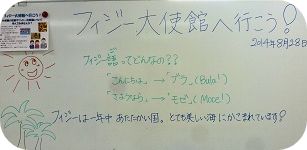 フィジー大使館へ行こう！
フィジー大使館へ行こう!
2014年8月28日
フィジー語ってどんなの??
「こんにちは」→「ブラ」(Bula!)
「さようなら」→「モゼ」(Moce!)
フィジーは一年中あたたかい国。とても美しい海にかこまれています!